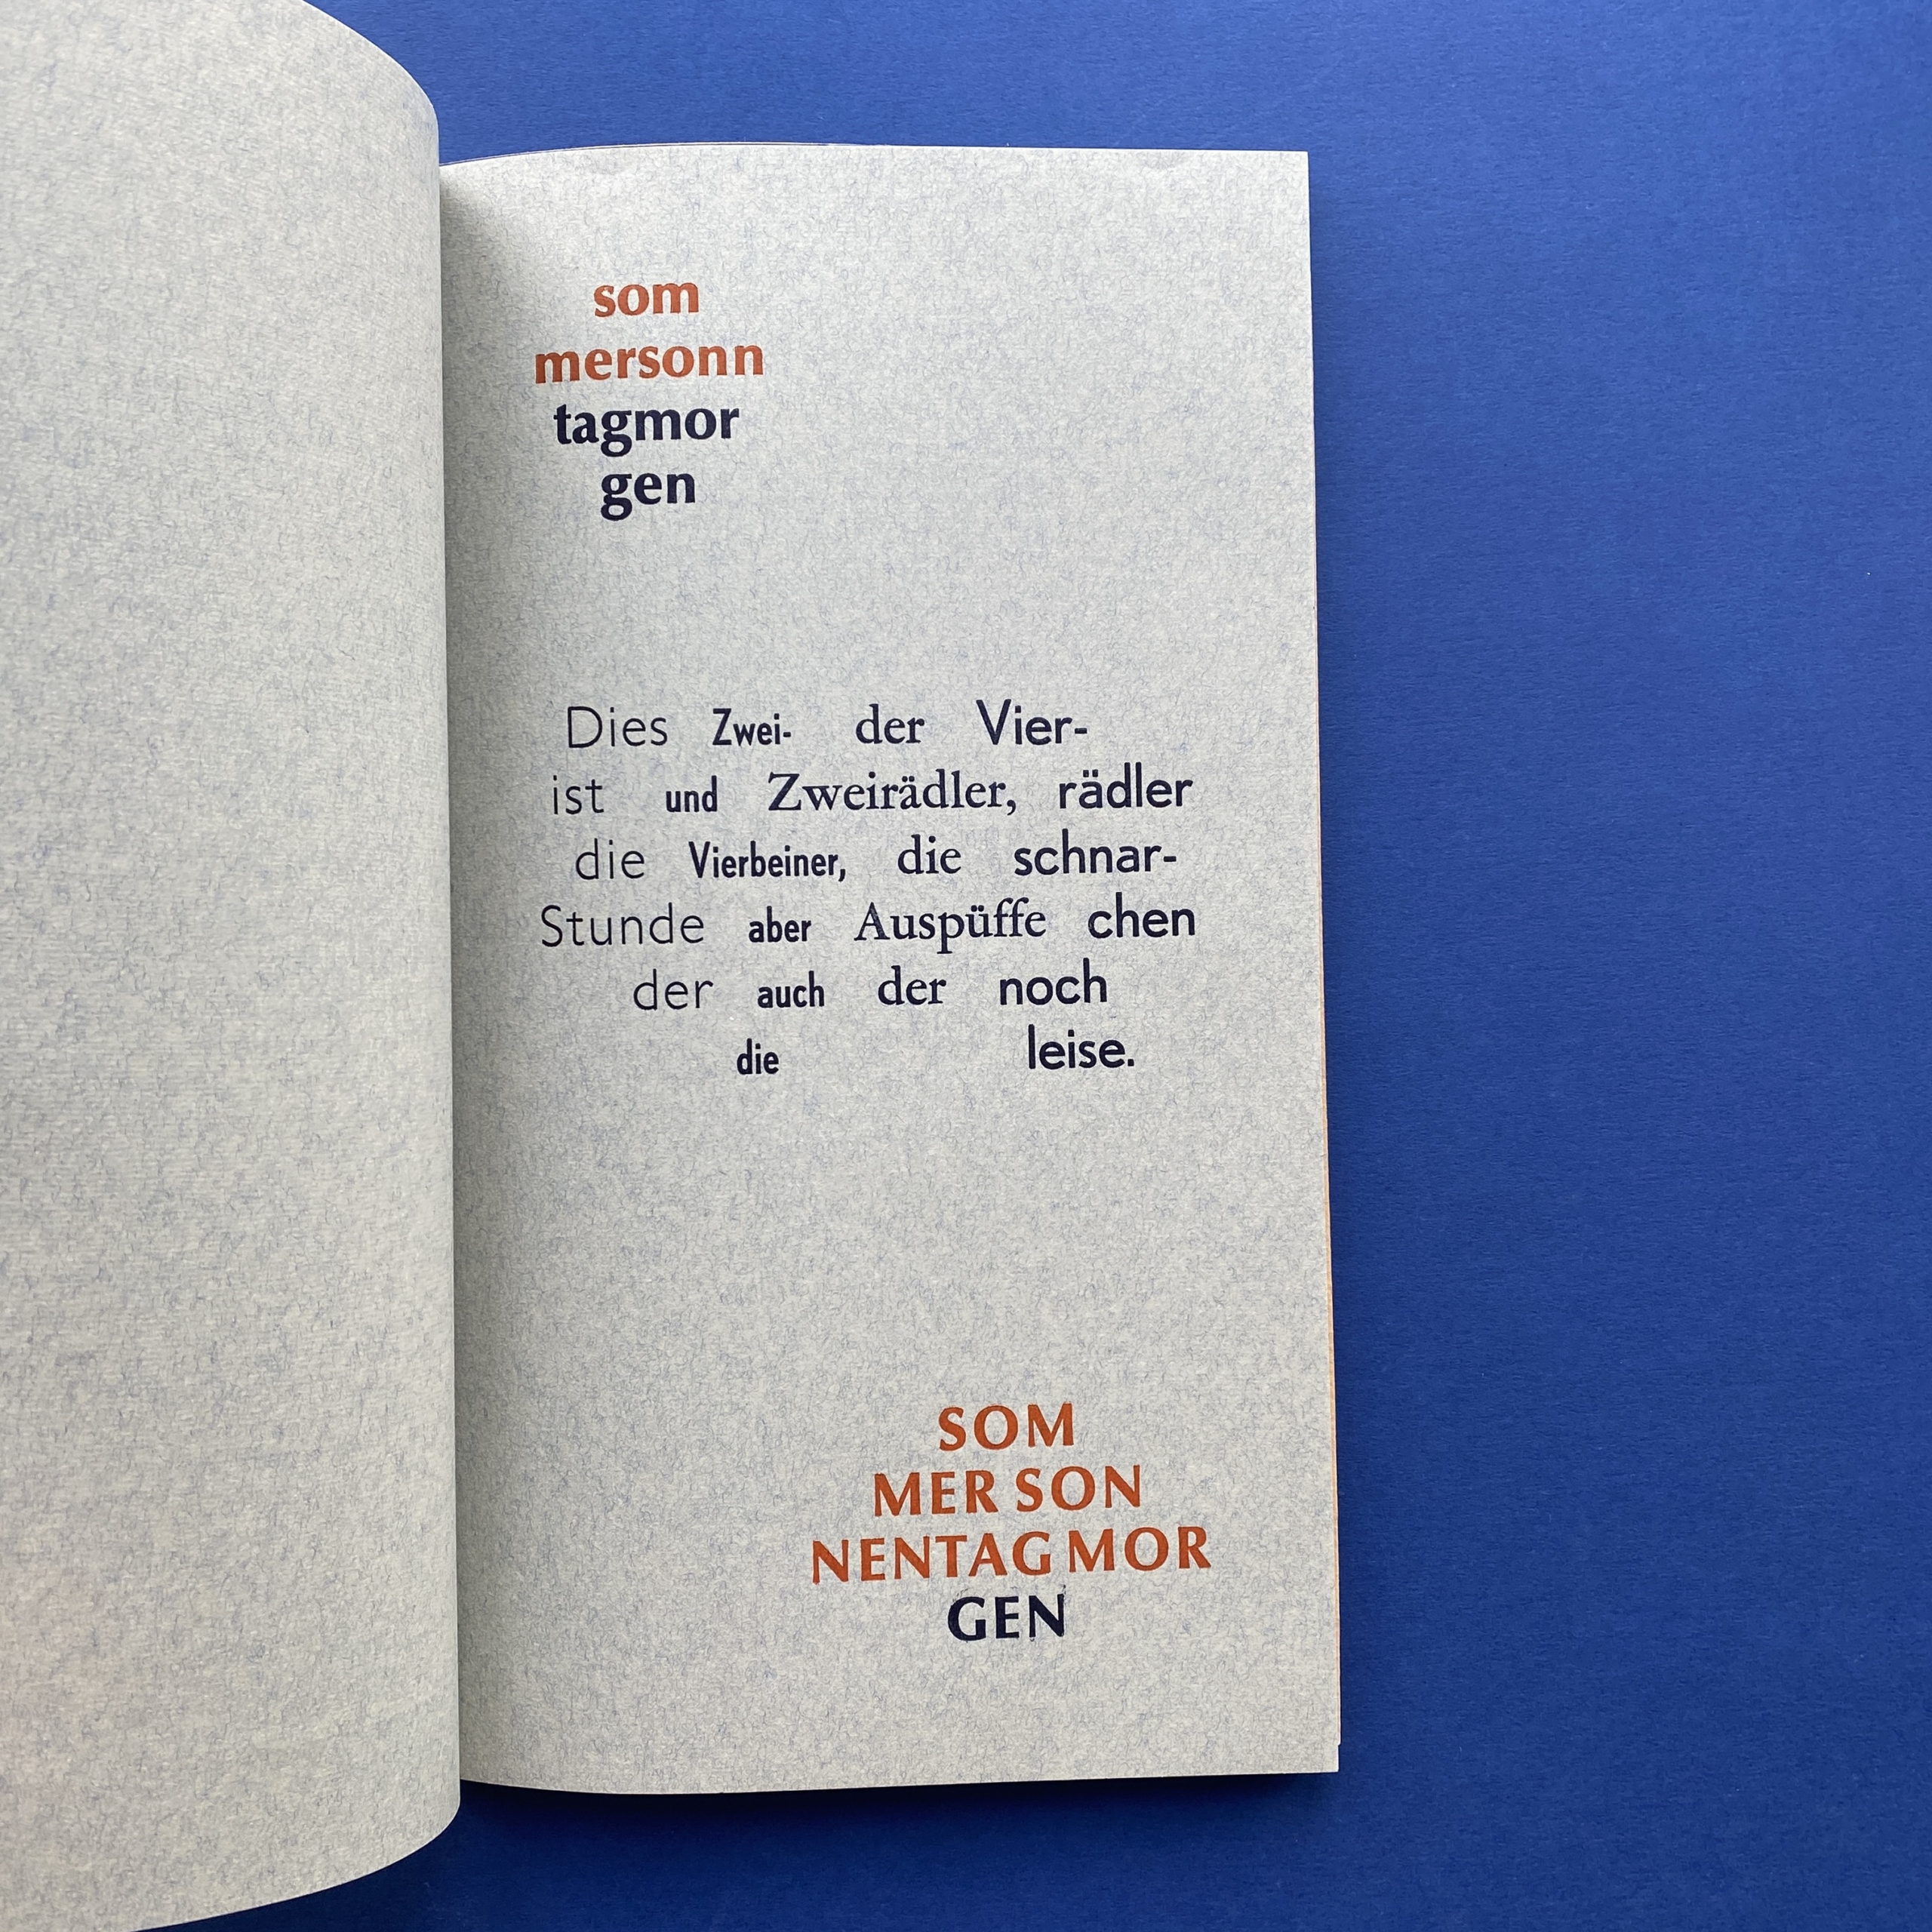 som
mersonn
tagmor
gen
Dies
ist
die
Stunde
der
Zwei-
und
Vierbeiner,
aber
auch
die
der
Zweirädler,
die
Auspüffe
der
Vier-
rädler
schnar-
chen
noch
leise.
SOM
MER SON
NENTAG MOR
GEN